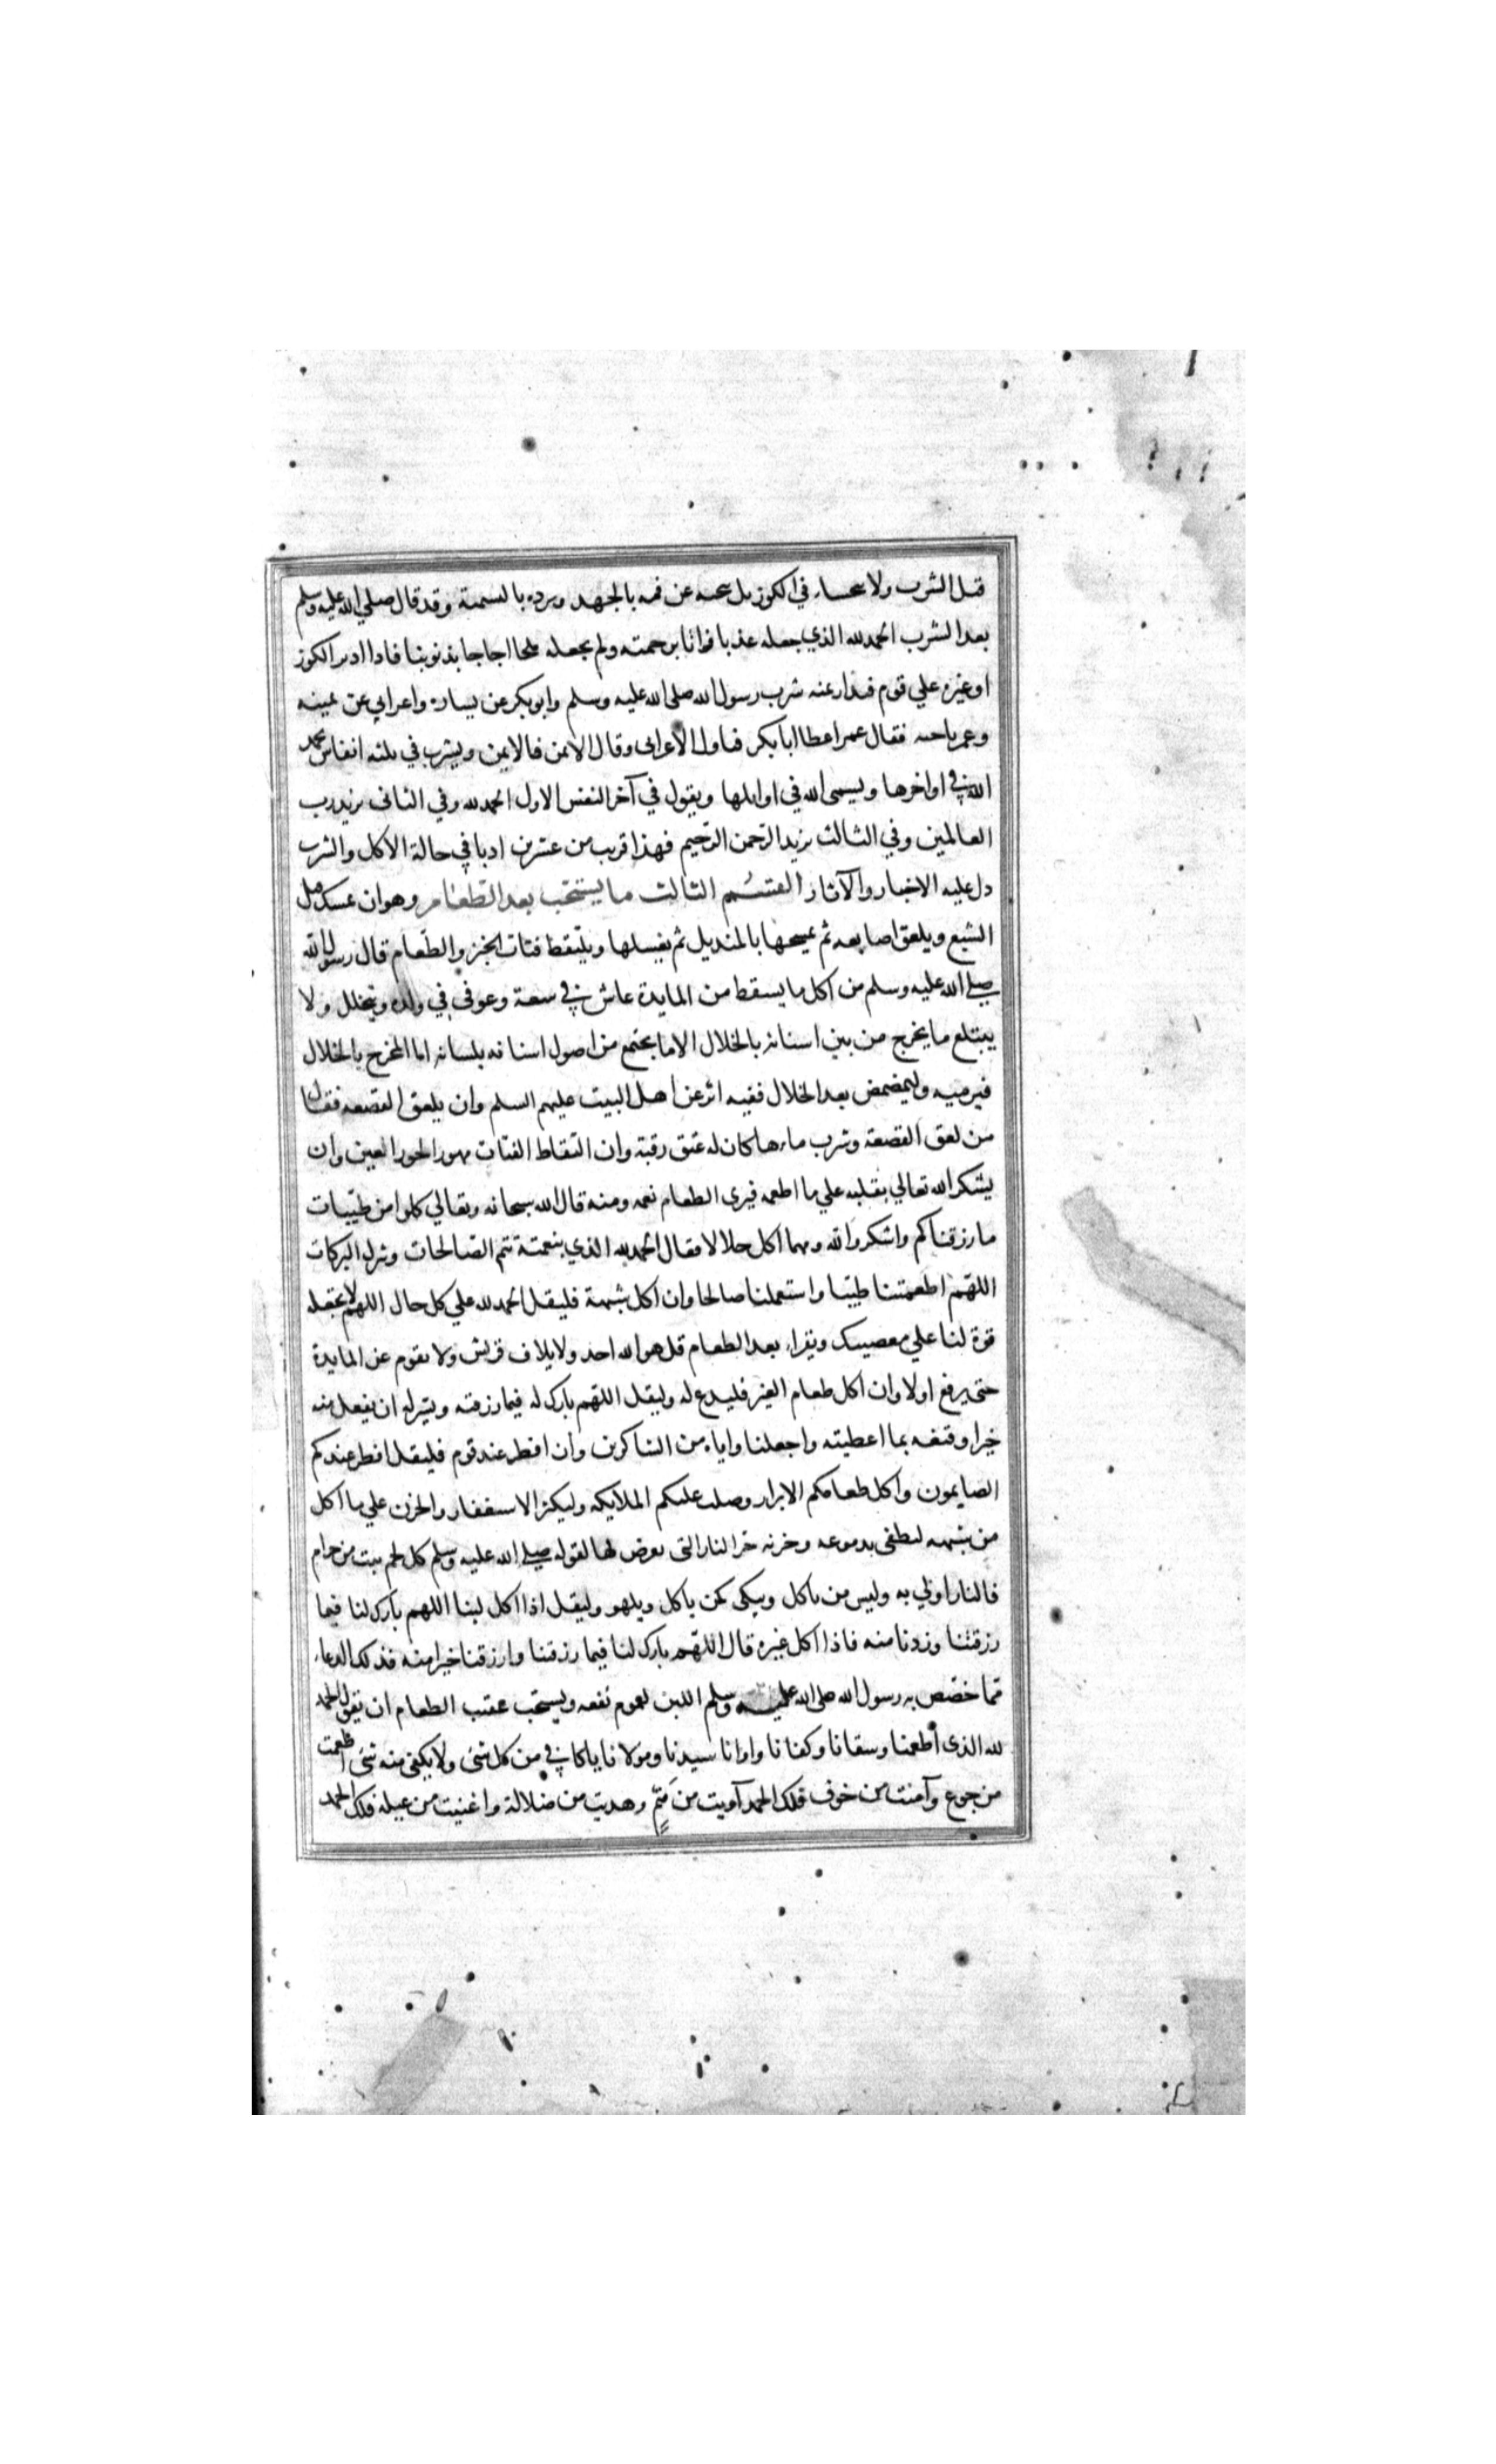 قبل الشرب ولا يتجشاء في الكوز بل ينحيه عن فمه بالجهد ويرده بالتسمية وقد قال صلي الله عليه وسلم
بعد الشرب الحمد لله الذي جعله عذبا فراتا برحمته ولم يجعله ملحا اجاجا بذنوبنا فاذا ادير الكوز
او غيره علي قوم فيدار عنه شرب رسول الله صلى الله عليه وسلم وابو بكر عن يساره واعرابي عن يمينه
وعمر ناحيه فقال عمر اعط ابا بكر فناول الاعرابى وقال الايمن فالايمن ويشرب في ثلثه انفاس يحمد
الله في اواخرها ويسمى الله في اوايلها ويقول في آخر النفس الاول الحمد لله وفي الثانى يزيد رب
العالمين وفي الثالث يزيد الرحمن الرحيم فهذا قريب من عشرين ادبا في حالة الاكل والشرب
دل عليه الاخبار والآثار القسم الثالث ما يستحب بعد الطعام وهو ان يمسك قبل
الشبع ويلعق اصابعه ثم يمسحها بالمنديل ثم يغسلها ويلتقط فتات الخبز والطعام قال رسول الله
صلى الله عليه وسلم من اكل ما يسقط من المايدة عاش في سعة وعوفى في ولده ويتخلل ولا
يبتلع ما يخرج من بين اسنانه بالخلال الا ما يجتمع من اصول اسنانه بلسانه اما المخرج بالخلال
فيرميه وليتمضمض بعد الخلال ففيه اثر عن اهل البيت عليهم السلم وان يلعق القصعه فقال
من لعق القصعة وشرب ماءها كان له عتق رقبة وان التقاط الفتات مهور الحور العين وان
يشكر الله تعالي بقلبه علي ما اطعمه فيرى الطعام نعمه ومنه قال الله سبحانه وتعالي كلوا من طيبات
ما رزقناكم واشكروا لله ومهما اكل حلالا فقال الحمد لله الذي بنعمته تتم الصالحات وتنزل البركات
اللهم اطعمتنا طيبا واستعملنا صالحا وان اكل شبهة فليقل الحمد لله علي كل حال اللهم لا تجعله
قوة لنا علي معصيتك ويقراء بعد الطعام قل هو الله احد ولايلاف قريش ولا يقوم عن المايدة
حتى يرفع اولا وان اكل طعام الغير فليدع له وليقل اللهم بارك له فيما رزقته ويسر له ان يفعل منه
خيرا وقنعه بما اعطيته واجعلنا واياه من الشاكرين وان افطر عند قوم فليقل افطر عندكم
الصايمون واكل طعامكم الابرار وصلت عليكم الملايكه وليكثر الاستغفار والحزن علي ما اكل
من شبهه ليطفى بدموعه وحزنه حر النار التى تعرض لها لقوله صلى الله عليه وسلم كل لحم نبت من حرام
فالنار اولي به وليس من ياكل ويبكى كمن ياكل ويلهو وليقل اذا اكل لبنا اللهم بارك لنا فيما
رزقتنا وزدنا منه فاذا اكل غيره قال اللهم بارك لنا فيما رزقتنا وارزقنا خيرا منه فذلك الدعاء
مما خصص به رسول الله صلى الله عليه وسلم اللبن لعموم نفعه ويستحب عقب الطعام ان يقول الحمد
لله الذى اطعمنا وسقانا وكفانا واوانا سيدنا ومولانا يا كافي من كل شى ولا يكفى منه شى اطعمت
من جوع وآمنت من خوف فلك الحمد آويت من يتم وهديت من ضلالة واغنيت من عيله فلك الحمد